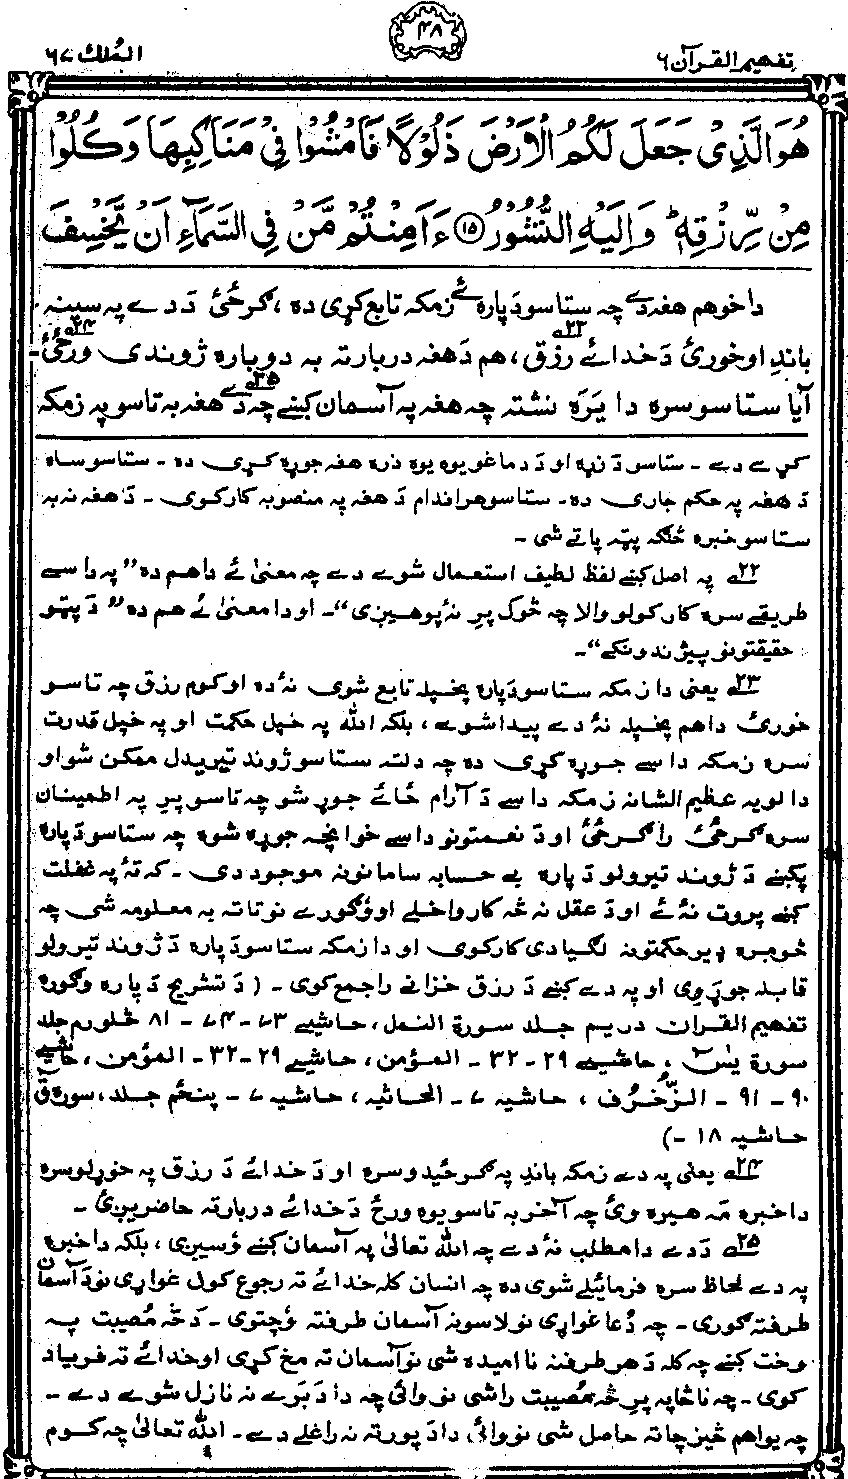 تفهیم القرآن ۶
۴۸
الملک ۶۷
هُوَ الَّذِیْ جَعَلَ لَکُمُ الْاَرْضَ ذَلُوْلًا فَامْشُوْا فِیْ مَنَاکِبِهَا وَکُلُوْا
مِنْ رِّزْقِهٖ ؕ وَاِلَیْهِ النُّشُوْرُ ۝۱۵ ءَاَمِنْتُمْ مَّنْ فِی السَّمَآءِ اَنْ یَّخْسِفَ
داخو هم هغه دے چه ستاسو دَپاره ئے زمکه تابع کړی ده ، ګرځئ دَ دے په سینه
باندِ او خورئ دَ خدائے رزق ، هم دَ هغه دربار ته به دوباره ژوندی ورځئ
آیا ستاسو سره دا یَرَه نشته چه هغه په آسمان کښے چه دے هغه به تاسو په زمکه
کړے دے ۔ ستاسو دَ زړه او دَ دماغو یوه یوه ذره هغه جوړه کړی ده ۔ ستاسو ساه
دَ هغه په حکم جاری ده ۔ ستاسو هر اندام دَ هغه په منصوبه کار کوی ۔ دَ هغه نه به
ستاسو خبره څنګه پټه پاتے شی ۔
۲۲ په اصل کښے لفظ لطیف استعمال شوے دے چه معنیٰ ئے دا هم ده ”په داسے
طریقے سره کار کولو والا چه څوک پرِ نهٔ پوهیږی“۔ او دا معنیٰ ئے هم ده ” دَ پټو
حقیقتونو پیژندونکے“۔
۲۳ یعنی دا زمکه ستاسو دَپاره پخپله تابع شوی نهٔ ده او کوم رزق چه تاسو
خورئ دا هم پخپله نهٔ دے پیدا شوے ، بلکه الله په خپل حکمت او په خپل قدرت
سره زمکه داسے جوړه کړی ده چه دلته ستاسو ژوند تیریدل ممکن شو او
دا لویه عظیم الشانه زمکه داسے دَ آرام ځائے جوړ شو چه تاسو پرِ په اطمینان
سره ګرځئ راګرځئ او دَ نعمتونو داسے خوانچه جوړه شوه چه ستاسو دَپاره
پکښے دَ ژوند تیرولو دَپاره بے حسابه سامانونه موجود دی ۔ که تهٔ په غفلت
کښے پروت نهٔ ئے او دَ عقل نه څه کار واخلے او وګورے نو تا ته به معلومه شی چه
څومره ډیر حکمتونه لګیا دی کار کوی او دا زمکه ستاسو دَپاره دَ ژوند تیرولو
قابله جوړوی او په دے کښے دَ رزق خزانے راجمع کوی ۔ ( دَ تشریح دَپاره وګوره
تفهیم القران دریم جلد سورة النمل ، حاشیے ۷۳ - ۷۴ - ۸۱ څلورم جلد
سورة یٰسٓ ، حاشیے ۲۹ - ۳۲ - المؤمن ، حاشیے ۲۹ - ۳۲ - المؤمن ، حاشیے
۹۰ - ۹۱ - الزُّخرُف ، حاشیه ۷ - الجاثیه ، حاشیه ۷ - پنځم جلد ، سورة قٓ
حاشیه ۱۸ -)
۲۴ یعنی په دے زمکه باندِ په ګرځیدو سره او دَ خدائے دَ رزق په خوړلو سره
دا خبره مَه هیره وئ چه آخر به تاسو یوه ورځ دَ خدائے دربار ته حاضریږئ ۔
۲۵ دَ دے دا مطلب نهٔ دے چه الله تعالیٰ په آسمان کښے وُسیږی ، بلکه دا خبره
په دے لحاظ سره فرمائیلے شوی ده چه انسان کله خدائے ته رجوع کول غواړی نو دَ آسمان
طرف ته ګوری ۔ چه دُعا غواړی نو لاسونه آسمان طرف ته وُچتوی ۔ دَ څهٔ مُصیبت په
وخت کښے چه کله دَ هر طرف نه نا امیده شی نو آسمان ته مخ کړی او خدائے ته فریاد
کوی ۔ چه ناڅاپه پرِ څهٔ مُصیبت راشی نو وائی چه دا دَ بَرے نه نازل شوے دے ۔
چه یو اهم څیز چا ته حاصل شی نو وائی دا دَ پورته نه راغلے دے ۔ الله تعالیٰ چه کوم